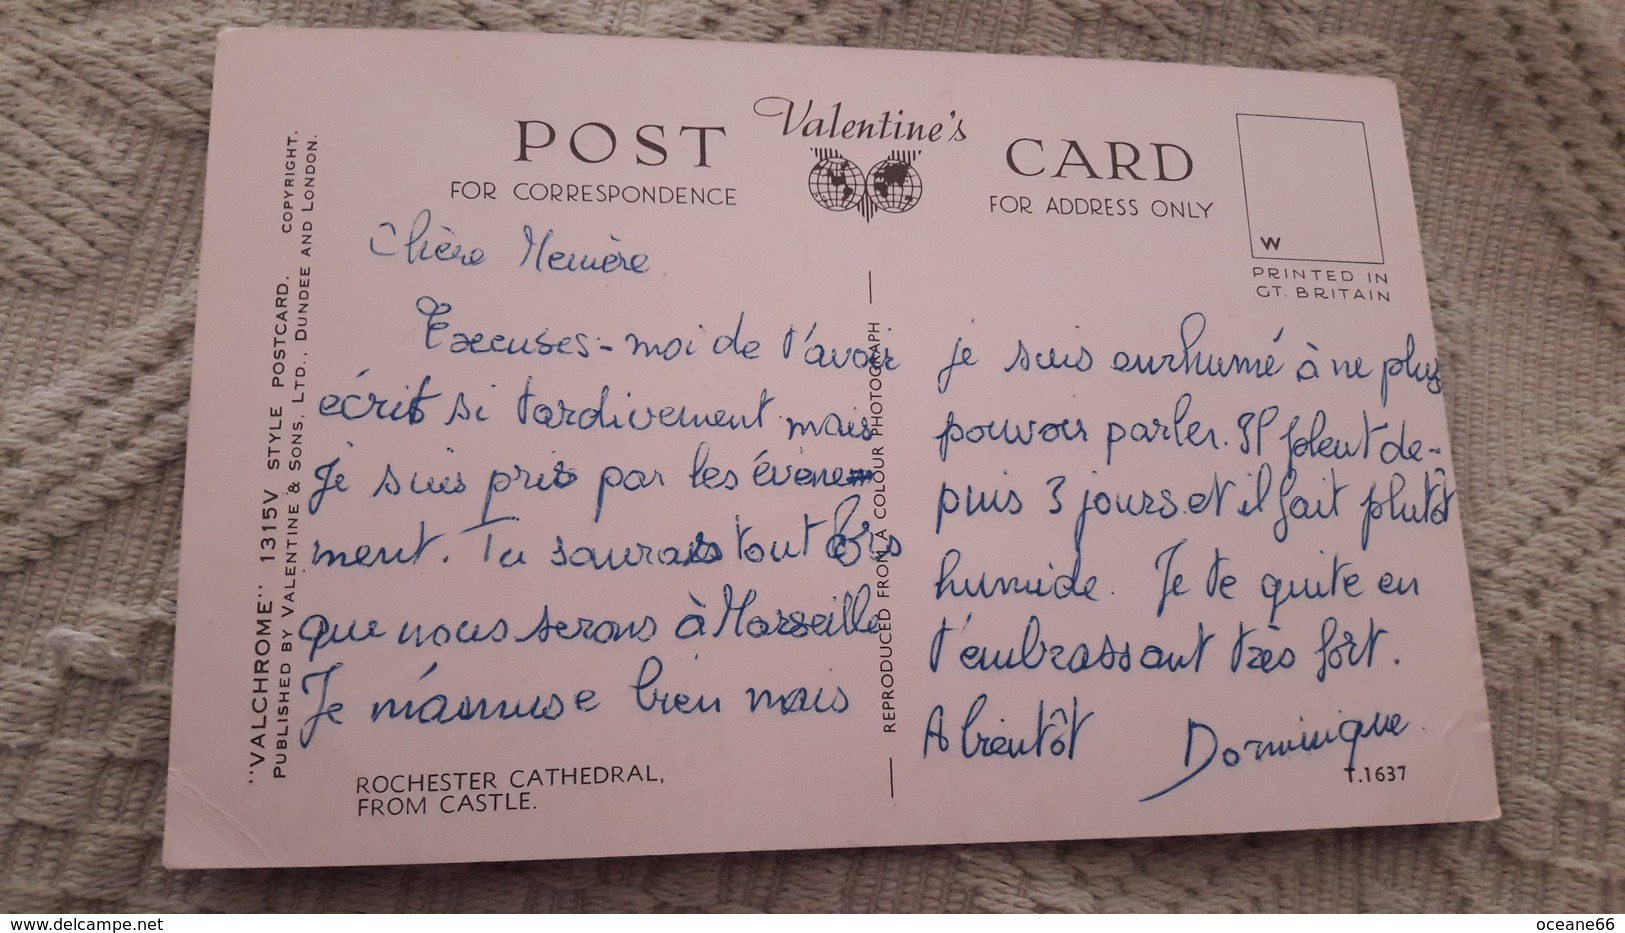 POST Valentine's CARD
FOR CORRESPONDENCE
FOR ADDRESS ONLY
W
PRINTED IN
GT. BRITAIN
"VALCHROME" 1315V STYLE POSTCARD. COPYRIGHT.
PUBLISHED BY VALENTINE & SONS, LTD., DUNDEE AND LONDON.
Chère
Excuses-moi de t'avoir
écrit si tardivement mais
je suis pris par les évène-
ment. Tu sauras tout lors
que nous serons à Marseille
Je m'amuse bien mais
ROCHESTER CATHEDRAL,
FROM CASTLE.
REPRODUCED FROM A COLOUR PHOTOGRAPH
je suis enrhumé à ne plus
pouvoir parler. Il pleut de-
puis 3 jours et il fait plutôt
humide. Je te quite en
t'embrassant très fort.
A bientôt Dominique
T.1637
delcampe.net
oceane66